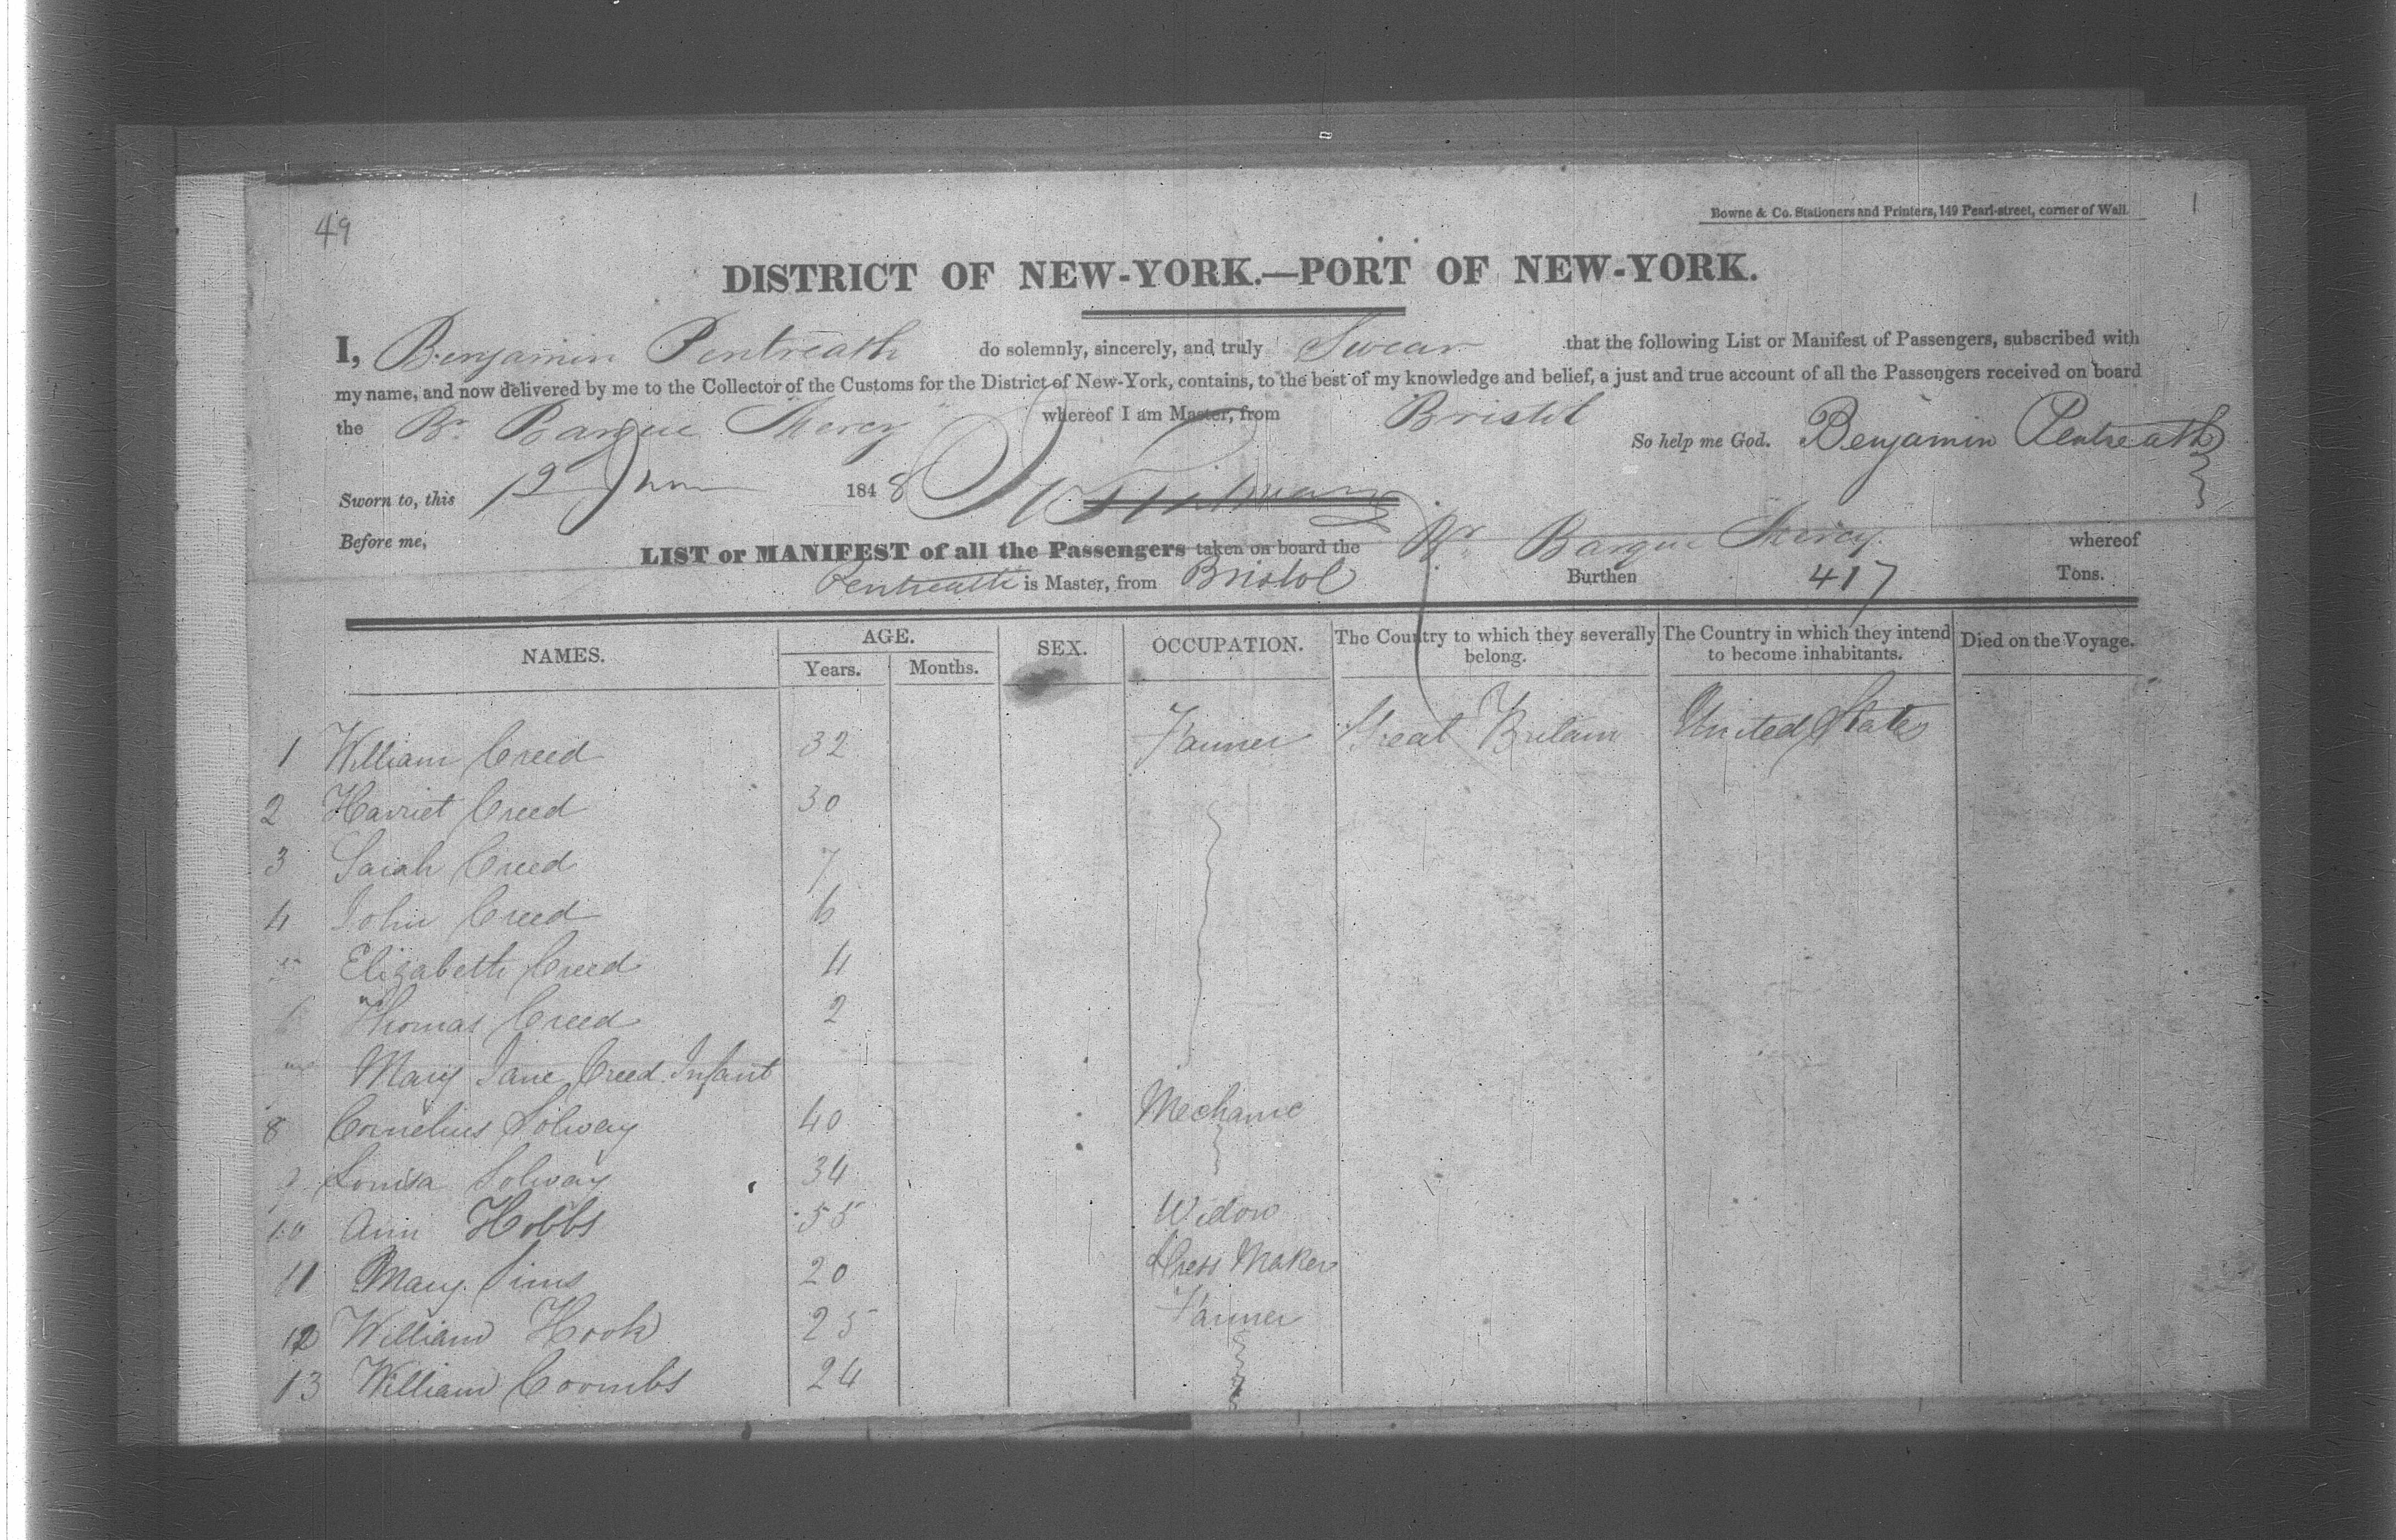 49
1
Bowne & Co. Stationers and Printers, 149 Pearl-street, corner of Wall.
DISTRICT OF NEW-YORK.—PORT OF NEW-YORK.
I, Benjamin Pentreath do solemnly, sincerely, and truly Swear that the following List or Manifest of Passengers, subscribed with
my name, and now delivered by me to the Collector of the Customs for the District of New-York, contains, to the best of my knowledge and belief, a just and true account of all the Passengers received on board
the Br. Barque "Mercy" whereof I am Master, from Bristol
So help me God. Benjamin Pentreath
Sworn to, this 12 June 1848
Before me,
LIST or MANIFEST of all the Passengers taken on board the Br. Barque Mercy whereof
Pentreath is Master, from Bristol Burthen 417 Tons.
NAMES. AGE. SEX. OCCUPATION. The Country to which they severally belong. The Country in which they intend to become inhabitants. Died on the Voyage.
Years. Months.
1 William Creed 32 Farmer Great Britain United States
2 Harriet Creed 30
3 Sarah Creed 7
4 John Creed 6
5 Elizabeth Creed 4
6 Thomas Creed 2
Mary Jane Creed Infant
8 Cornelius Solway 40 Mechanic
9 Louisa Solway 34
10 Ann Hobbs 55 Widow
11 Mary Sims 20 Dress Maker
12 William Hook 25 Farmer
13 William Coombs 24